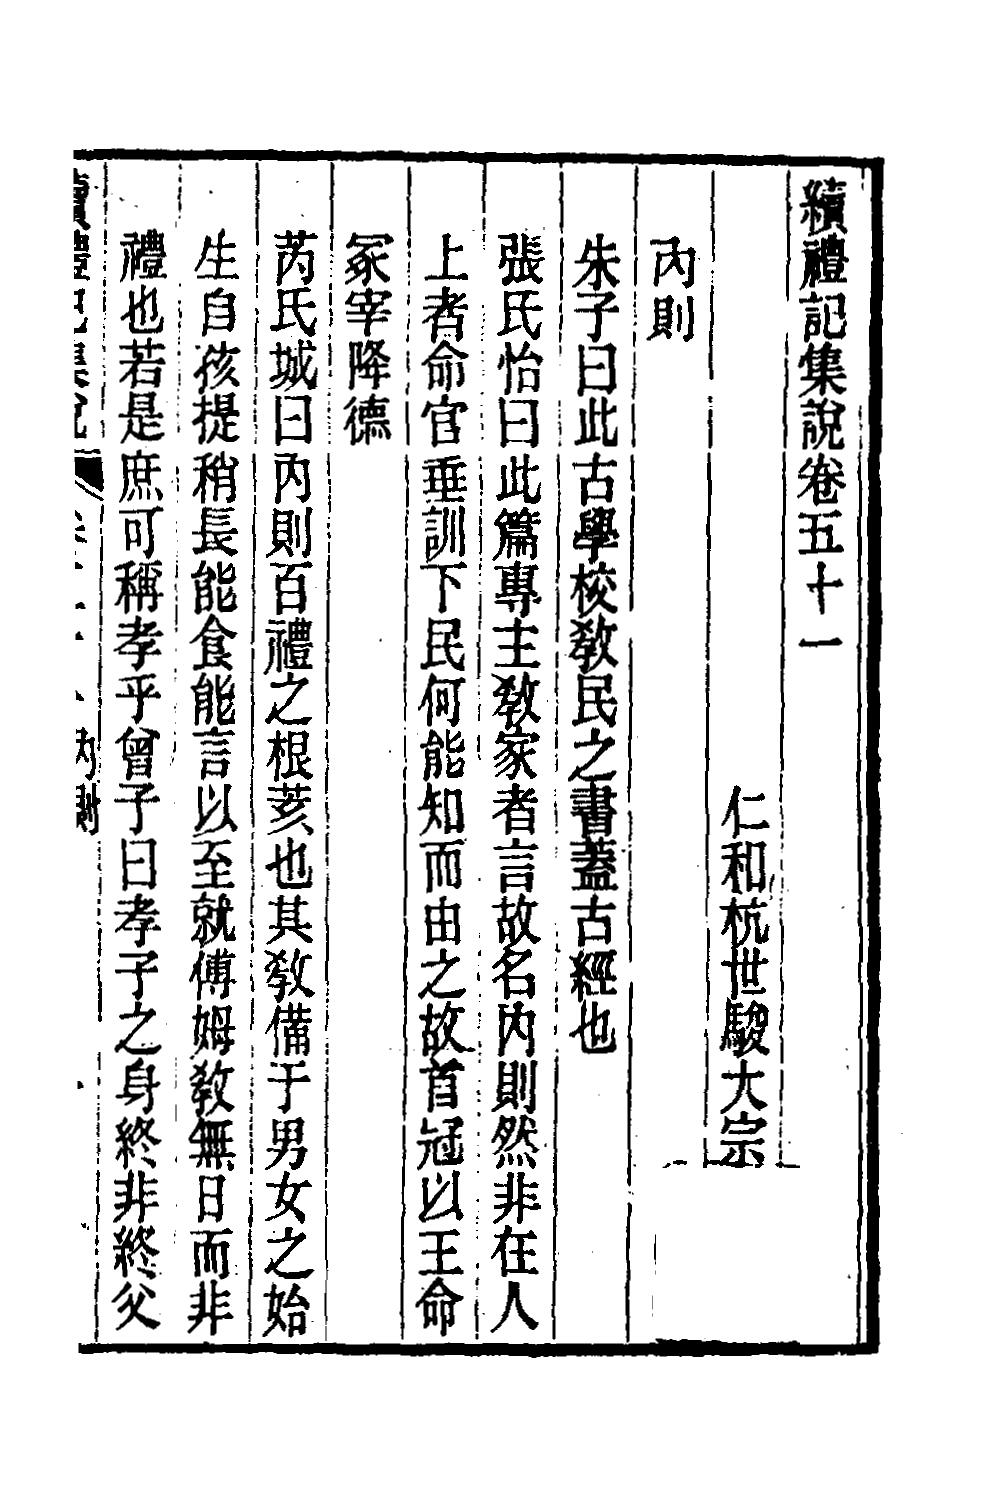 續禮記集說卷五十一
仁和杭世駿大宗
內則
朱子曰此古學校教民之書蓋古經也
張氏怡曰此篇專主教家者言故名內則然非在人
上者命官垂訓下民何能知而由之故首冠以王命
冢宰降德
芮氏城曰內則百禮之根荄也其教備于男女之始
生自孩提稍長能食能言以至就傅姆教無日而非
禮也若是庶可稱孝乎曾子曰孝子之身終非終父
續禮記集說
內則